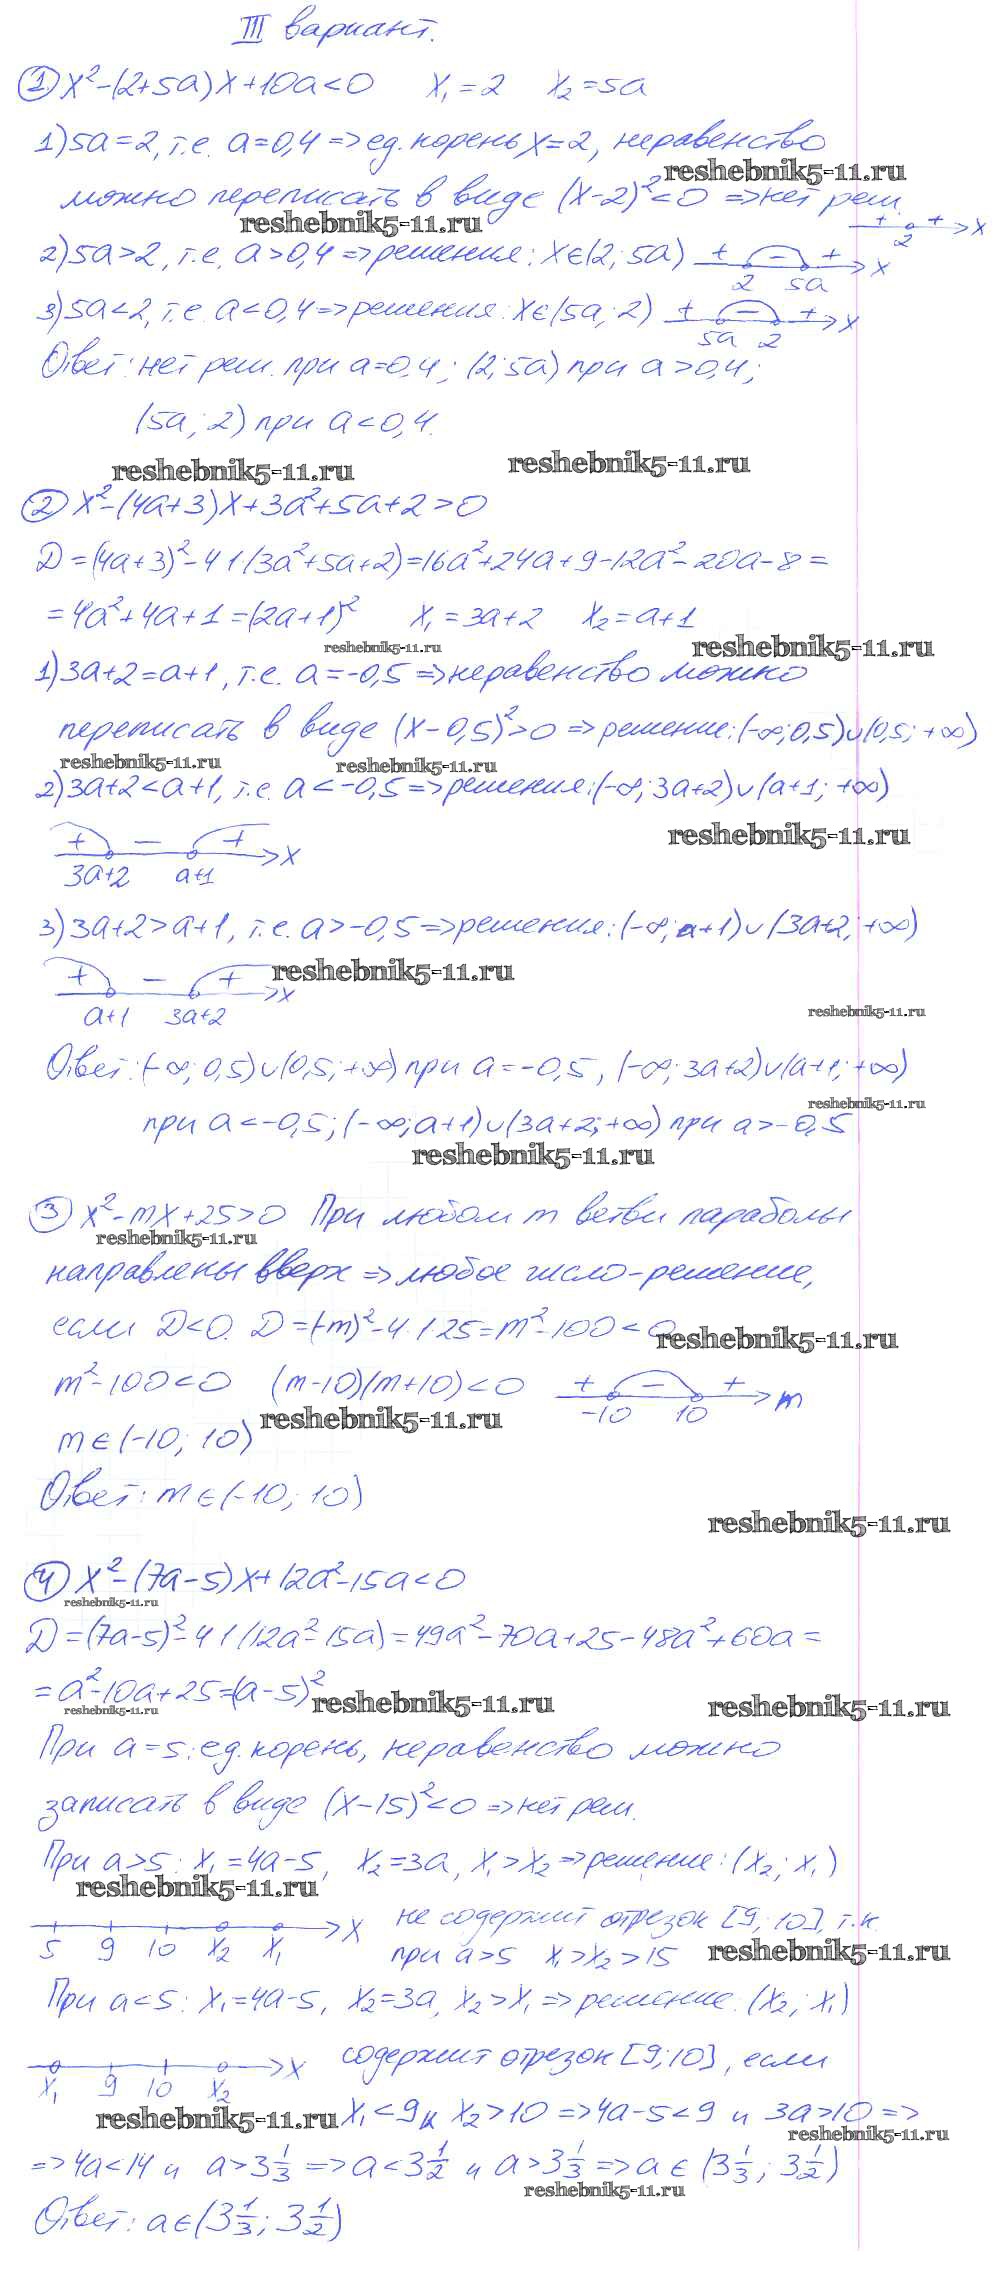 III вариант.
① x²-(2+5a)x+10a<0 x₁=2 x₂=5a
1) 5a=2, т.е. a=0,4 => ед. корень x=2, неравенство
reshebnik5-11.ru
можно переписать в виде (x-2)²<0 => нет реш.
reshebnik5-11.ru
+ + x
2
2) 5a>2, т.е. a>0,4 => решения: x∈(2; 5a) + - + x
2 5a
3) 5a<2, т.е. a<0,4 => решения: x∈(5a; 2) + - + x
5a 2
Ответ: нет реш. при a=0,4; (2; 5a) при a>0,4;
(5a; 2) при a<0,4.
reshebnik5-11.ru reshebnik5-11.ru
② x²-(4a+3)x+3a²+5a+2>0
D=(4a+3)²-4·1·(3a²+5a+2)=16a²+24a+9-12a²-20a-8=
=4a²+4a+1=(2a+1)² x₁=3a+2 x₂=a+1
reshebnik5-11.ru reshebnik5-11.ru
1) 3a+2=a+1, т.е. a=-0,5 => неравенство можно
переписать в виде (x-0,5)²>0 => решение: (-∞; 0,5)∪(0,5; +∞)
reshebnik5-11.ru reshebnik5-11.ru
2) 3a+2<a+1, т.е. a<-0,5 => решения: (-∞; 3a+2)∪(a+1; +∞)
reshebnik5-11.ru
+ - + x
3a+2 a+1
3) 3a+2>a+1, т.е. a>-0,5 => решения: (-∞; a+1)∪(3a+2; +∞)
+ - + x
reshebnik5-11.ru
a+1 3a+2
reshebnik5-11.ru
Ответ: (-∞; 0,5)∪(0,5; +∞) при a=-0,5, (-∞; 3a+2)∪(a+1; +∞)
reshebnik5-11.ru
при a<-0,5; (-∞; a+1)∪(3a+2; +∞) при a>-0,5
reshebnik5-11.ru
③ x²-mx+25>0 При любом m ветви параболы
reshebnik5-11.ru
направлены вверх => любое число-решение,
если D<0. D=(-m)²-4·1·25=m²-100<0
reshebnik5-11.ru
m²-100<0 (m-10)(m+10)<0 + - + m
-10 10
reshebnik5-11.ru
m∈(-10; 10)
Ответ: m∈(-10; 10)
reshebnik5-11.ru
④ x²-(7a-5)x+12a²-15a<0
reshebnik5-11.ru
D=(7a-5)²-4·1·(12a²-15a)=49a²-70a+25-48a²+60a=
=a²-10a+25=(a-5)²
reshebnik5-11.ru reshebnik5-11.ru reshebnik5-11.ru
При a=5: ед. корень, неравенство можно
записать в виде (x-15)²<0 => нет реш.
При a>5: x₁=4a-5, x₂=3a, x₁>x₂ => решение: (x₂; x₁)
reshebnik5-11.ru
5 9 10 x₂ x₁ x
не содержит отрезок [9; 10], т.к.
при a>5 x₁>x₂>15
reshebnik5-11.ru
При a<5: x₁=4a-5, x₂=3a, x₂>x₁ => решение: (x₂; x₁)
x₁ 9 10 x₂ x
содержит отрезок [9; 10], если
reshebnik5-11.ru
x₁<9 и x₂>10 => 4a-5<9 и 3a>10 =>
reshebnik5-11.ru
=> 4a<14 и a>3 1/3 => a<3 1/2 и a>3 1/3 => a∈(3 1/3; 3 1/2)
reshebnik5-11.ru
Ответ: a∈(3 1/3; 3 1/2)